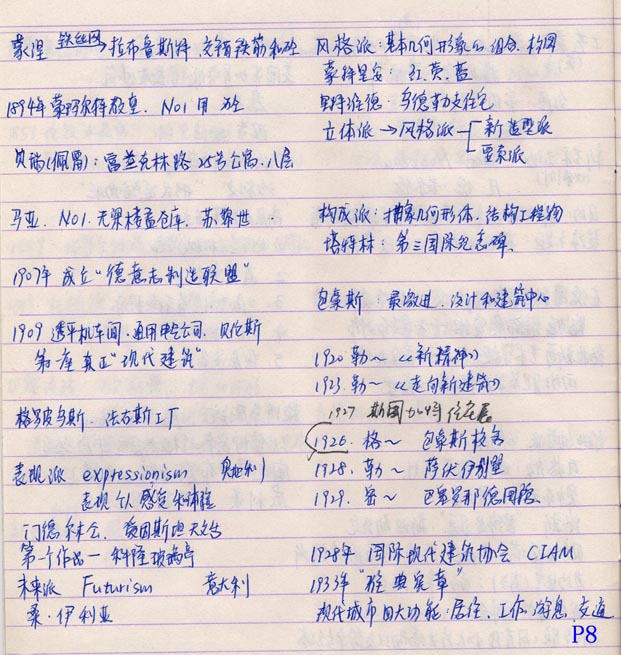 蒙涅 铁丝网→拉布鲁斯特 交错铁筋和砼
1894年 蒙玛尔特教堂. NO1 用 砼
贝瑞(佩雷): 富兰克林路 25号公寓. 八层
马亚. NO1. 无梁楼盖仓库. 苏黎世
1907年 成立“德意志制造联盟”
1909 透平机车间. 通用电公司. 贝伦斯
第一座真正“现代建筑”
格罗皮乌斯. 法古斯工厂
表现派 expressionism 奥地利
表现个人感受和体验
门德尔松. 爱因斯坦天文台
第一个作品一 科隆玻璃亭
未来派 Futurism 意大利
桑·伊利亚
风格派: 基本几何形象的组合. 构图
蒙特里安: 红. 黄. 蓝
里特维德. 乌德勒支住宅
立体派→风格派 新造型派
要素派
构成派: 抽象几何形体. 结构工程物
塔特林: 第三国际纪念碑.
包豪斯: 最激进. 设计和建筑中心
1920 勒~ 《新精神》
1923. 勒~ 《走向新建筑》
1927 斯图加特住宅展
1926. 格~ 包豪斯校舍
1928. 勒~ 萨伏伊别墅
1929. 密~ 巴塞罗那德国馆.
1928年 国际现代建筑协会 CIAM
1933年 “雅典宪章”
现代城市四大功能: 居住. 工作. 游息. 交通
P8